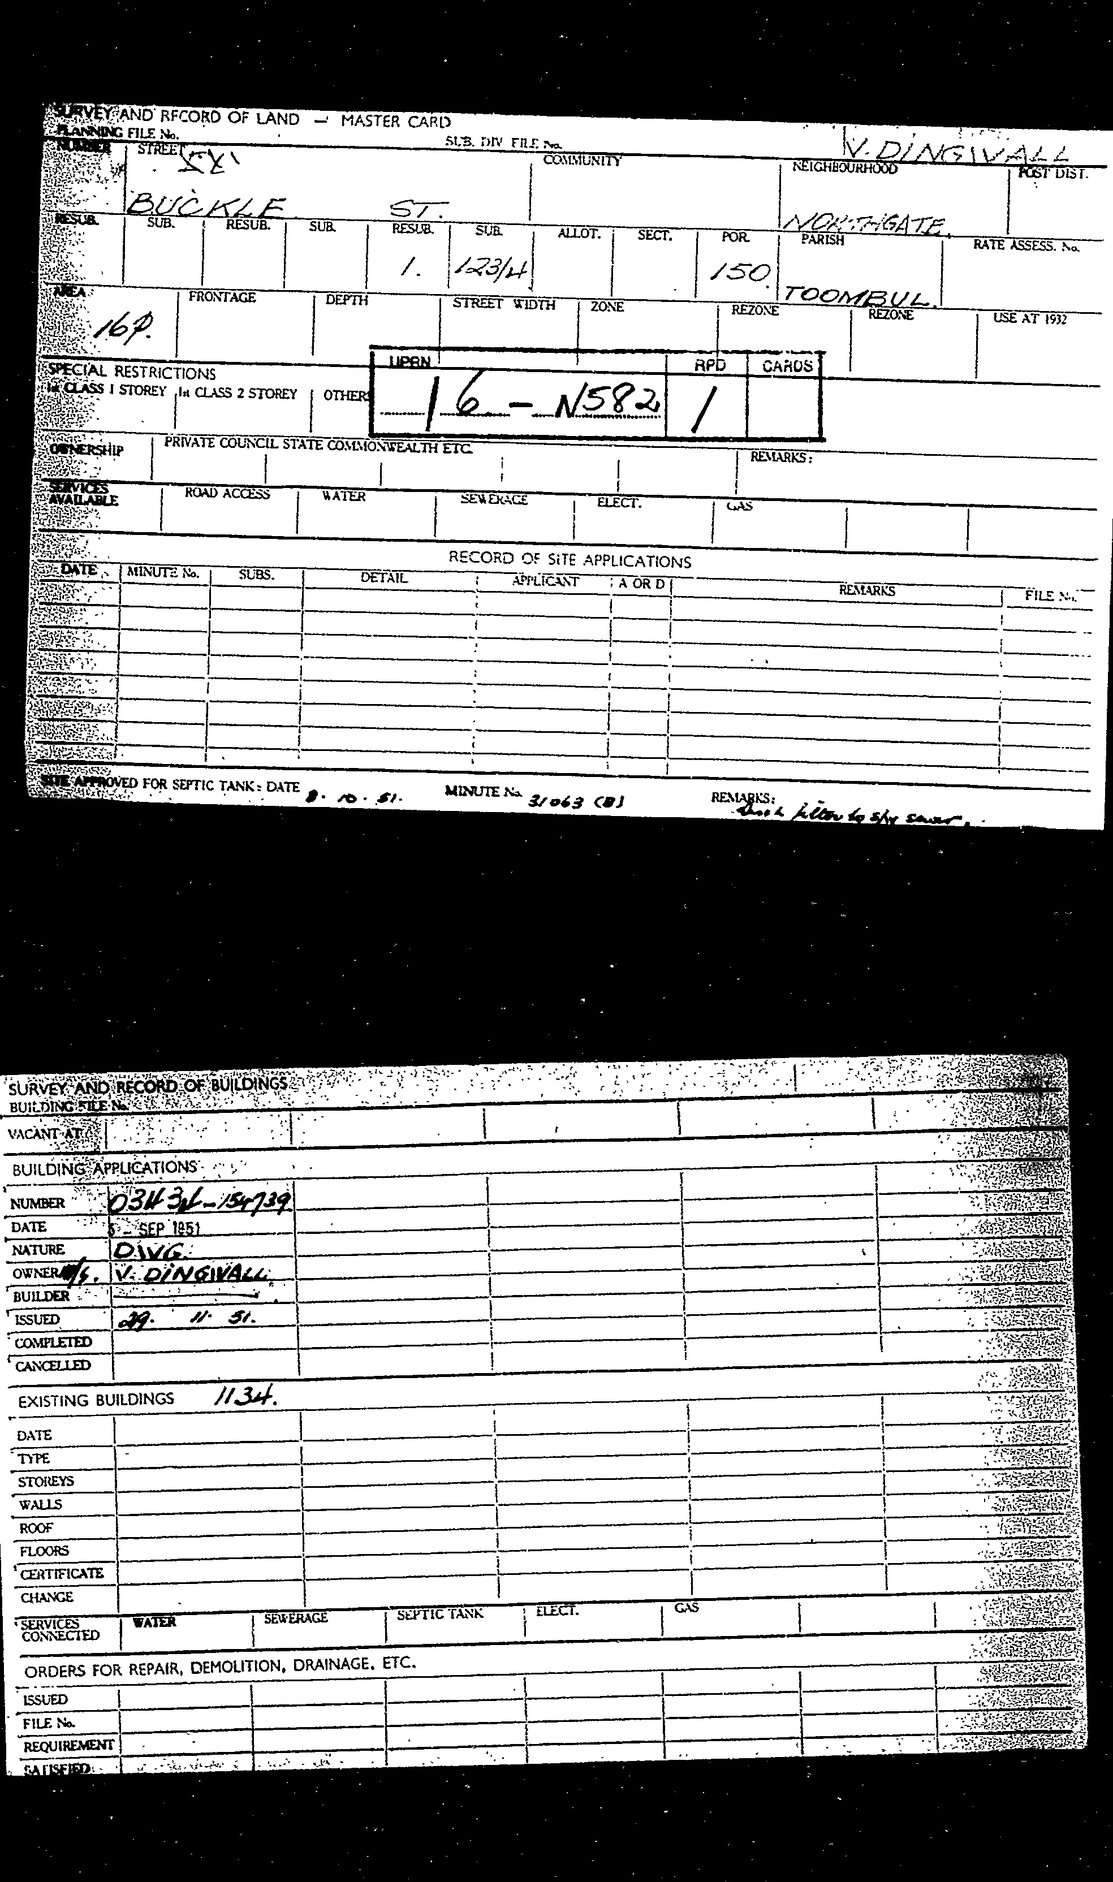 SURVEY AND RECORD OF LAND — MASTER CARD
PLANNING FILE No. SUB. DIV FILE No. V. DINGWALL
NUMBER STREET COMMUNITY NEIGHBOURHOOD POST DIST.
BUCKLE ST. NORTHGATE.
RESUB. SUB. RESUB. SUB. RESUB. SUB. ALLOT. SECT. POR. PARISH RATE ASSESS. No.
1. 123/4 150. TOOMBUL.
AREA FRONTAGE DEPTH STREET WIDTH ZONE REZONE REZONE USE AT 1932
16p.
SPECIAL RESTRICTIONS UPRN RPD CARDS
1st CLASS 1 STOREY 1st CLASS 2 STOREY OTHER 16 - N582 1
OWNERSHIP PRIVATE COUNCIL STATE COMMONWEALTH ETC. REMARKS:
SERVICES AVAILABLE ROAD ACCESS WATER SEWERAGE ELECT. GAS
RECORD OF SITE APPLICATIONS
DATE MINUTE No. SUBS. DETAIL APPLICANT A OR D REMARKS FILE No.
SITE APPROVED FOR SEPTIC TANK: DATE 8. 10. 51. MINUTE No. 31063 (B) REMARKS: filter to s/w sewer.
SURVEY AND RECORD OF BUILDINGS
BUILDING FILE No.
VACANT AT
BUILDING APPLICATIONS
NUMBER 03434-154739
DATE 5 - SEP 1951
NATURE DWG.
OWNER V. DINGWALL
BUILDER
ISSUED 29. 11. 51.
COMPLETED
CANCELLED
EXISTING BUILDINGS 1134.
DATE
TYPE
STOREYS
WALLS
ROOF
FLOORS
CERTIFICATE
CHANGE
SERVICES CONNECTED WATER SEWERAGE SEPTIC TANK ELECT. GAS
ORDERS FOR REPAIR, DEMOLITION, DRAINAGE, ETC.
ISSUED
FILE No.
REQUIREMENT
SATISFIED